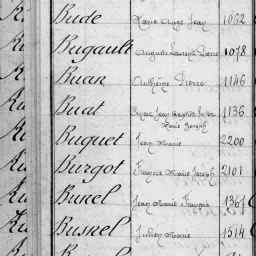 Bude Marie Ange Jean 1032
Bugault Auguste Laurent Pierre 1078
Buan Anthime Pierre 1146
Buat Jean Baptiste 1136
Marie Joseph
Buguet Jean Marie 2200
Burgot François Marie Joseph 2101
Burel Jean Marie François 1361
Busnel Julien Marie 1514